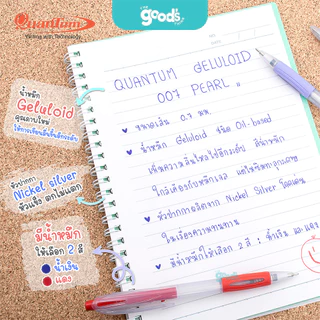 Quantum
Writing with Technology
goods
น้ำหมึก
Geluloid
คุณภาพใหม่
ให้การเขียนลื่นขึ้นอีกระดับ
หัวปากกา
Nickel silver
หัวแข็ง ตกไม่แตก
มีน้ำหมึก
ให้เลือก 2 สี
น้ำเงิน
แดง
QUANTUM GELULOID
007 PEARL "
ขนาดเส้น 0.7 มม.
น้ำหมึก Geluloid ชนิด Oil-based
เพิ่มความลื่นไหลไปอีกระดับ สีน้ำหมึก
ใกล้เคียงกับหมึกเจล
หัวปากกาผลิตจาก Nickel Silver โดดเด่น
ในเรื่องความทนทาน
มีน้ำหมึกให้เลือก 2 สี : น้ำเงิน และ แดง